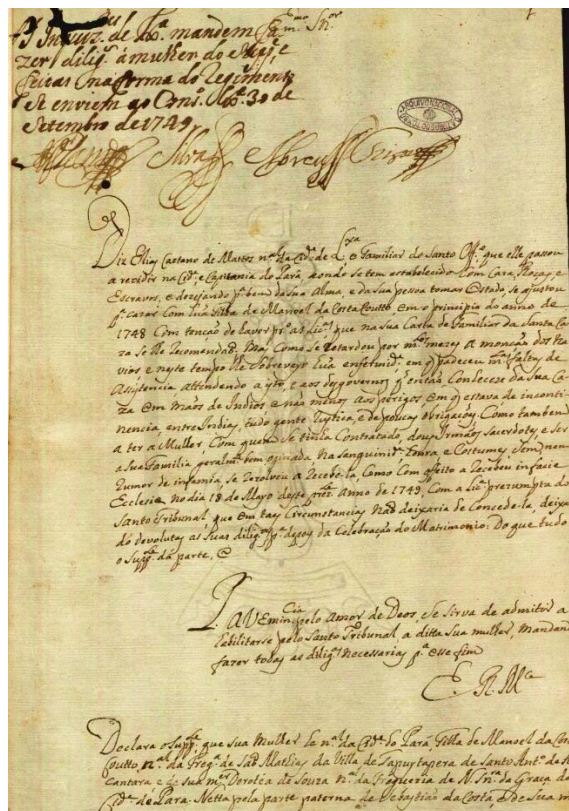 Os Inquiz.es de Lx.ª mandem fa
zer dilig.as á mulher do Supp.e
feitas na forma do Regimento
Se enviem ao Cons.º Lx.ª 30 de
Setembro de 1749
Em.mo Sn.or
Silva Abreu
Diz Elias Caetano de Mattos n.al da Cid.e de Lx.a e Familiar do Santo Off.º que elle passou
a rezidir na Cid.e e Capitania do Pará, aonde se tem estabelecido com Caza, Rossas, e
Escravos, e dezejando p.ª bem da Sua Alma, e da Sua pessoa tomar Estado se ajustou
p.ª cazar com huã filha de Manoel da Costa Coutto em o principio do anno de
1748 Com tenção de haver pr.º as lic.as que na Sua Carta de Familiar da Santa Ca
za se lhe recomenda. Mas como se retardou por m.tos mezes a monção dos Na
vios e neste tempo lhe sobreveyo huã enfermid.e em q padeceu m.tas faltas de
Assistencia attendendo a isto, e aos desgovernos q então Conhecese da Sua Ca
za em mãos de Indios e não menos aos perigos em q estava de incontin
nencia entre Indias, tudo gente rustica, e de poucas obrigaçoẽs, Como tambem
a ter a Mulher, Com quem se tinha Contratado, dous Irmãos Sacerdotes e ser
a Sua Familia geralm.te bem opinada na Sanguinid.e honra, e Costumes Sem nem
rumor de infamia, se rezolveu a recebe-la, Como Com effeito a recebeu in facie
Ecclesie no dia 18 de Mayo deste prez.te Anno de 1749, Com a lic.ª prezumpta do
Santo Tribunal, que em tais Circunstancias não deixaria de Concede-la, deixan
do devolutas as Suas dilig.as p.ª depois da Celebração do Matrimonio: Do que tudo
o Supp.e dá parte, @
P. a V Emin.cia pelo Amor de Deos, Se Sirva de admitir a
habilitarse pelo Santo Tribunal a ditta Sua mulher, Mandando
fazer todas as dilig.as necessarias p.ª esse fim
E. R. M.ce
Declara o Supp.e que Sua Mulher he n.al da Cid.e do Pará, filha de Manoel da Costa
Coutto, n.al da Freg.ª de São Mathias da Villa de Tapuytapera de Santo Ant.º de Al
Cantara e de Sua m.er Dorotea de Souza n.al da Freguezia de N. Snr.ª da Graça da
Cid.e do Pará. Netta pela parte paterna de Sebastião da Costa, e de Sua m